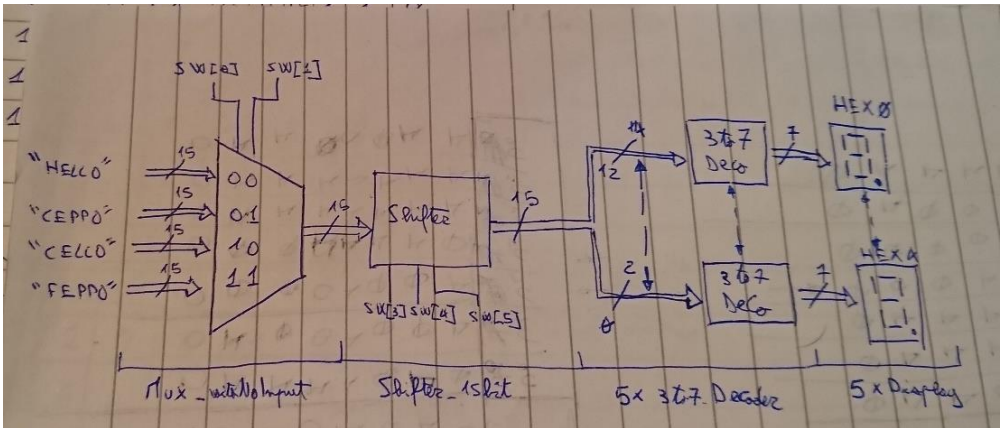 1
1
1
SW[0] SW[1]
"HELLO" 15
00
"CEPPO" 15
01
"CELLO" 15
10
"FEPPO" 15
11
15
Shifter
SW[3] SW[4] SW[5]
15
14
12
3to7
Deco
7
HEXØ
2
0
3to7
Deco
7
HEX4
Mux_withNoInput
Shifter_15bit
5x 3to7_Decoder
5xDisplay